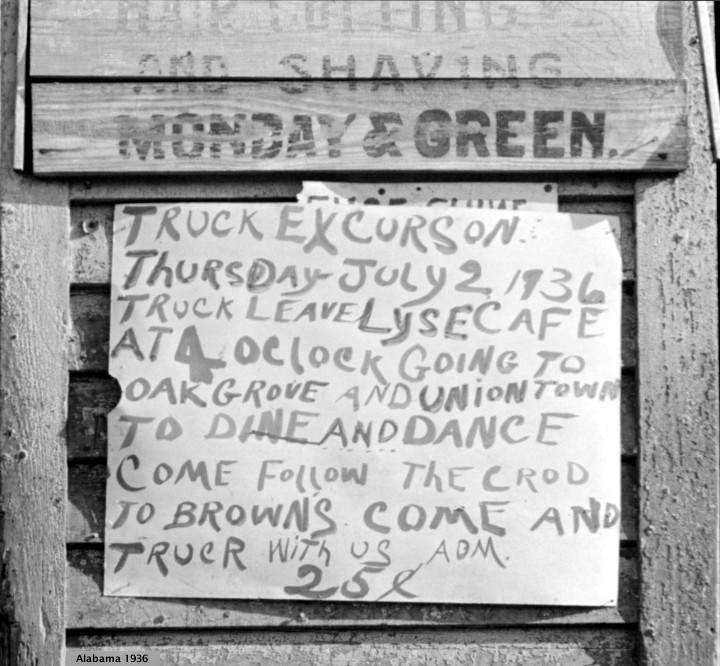 HAIR CUTTING
AND SHAVING.
MONDAY & GREEN.
TRUCK EXCURSON.
THURSDAY-JULY 2, 1936
TRUCK LEAVE LYSE CAFE
AT 4 OCLOCK GOING TO
OAK GROVE AND UNIONTOWN
TO DINE AND DANCE
COME FOLLOW THE CROD
TO BROWNS COME AND
TRUCR WITH US ADM.
25¢
Alabama 1936